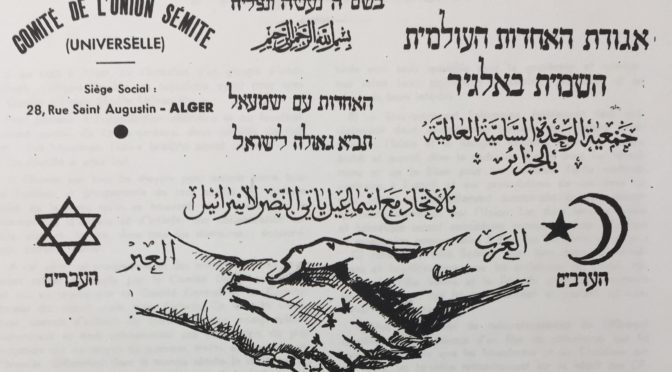 COMITÉ DE L'UNION SÉMITE
(UNIVERSELLE)
Siège Social :
28, Rue Saint Augustin - ALGER
בשם ה' נעשה ונצליח
بسم الله الرحمن الرحيم
האחדות עם ישמעאל
תביא גאולה לישראל
אגודת האחדות העולמית
השמית באלגיר
جمعية الوحدة السامية العالمية
بالجزائر
بالاتحاد مع اسماعيل ياتي النصر لاسرائيل
العبر
العرب
העברים
הערבים